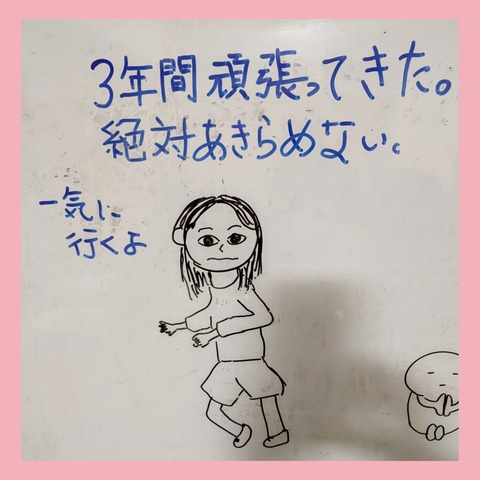 3年間頑張ってきた。
絶対あきらめない。
一気に
行くよ